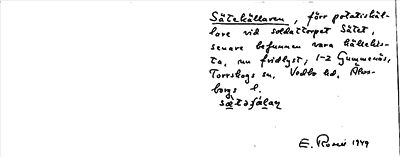 Sätekällaren, förr potatiskäl-
lare vid soldattorpet Sätet,
senare befunnen vara hällekis-
ta, nu fridlyst, 1-2 Gummenäs,
Torrskogs sn. Vedbo hd. Älvs-
borgs l.
E. Rosén 1949